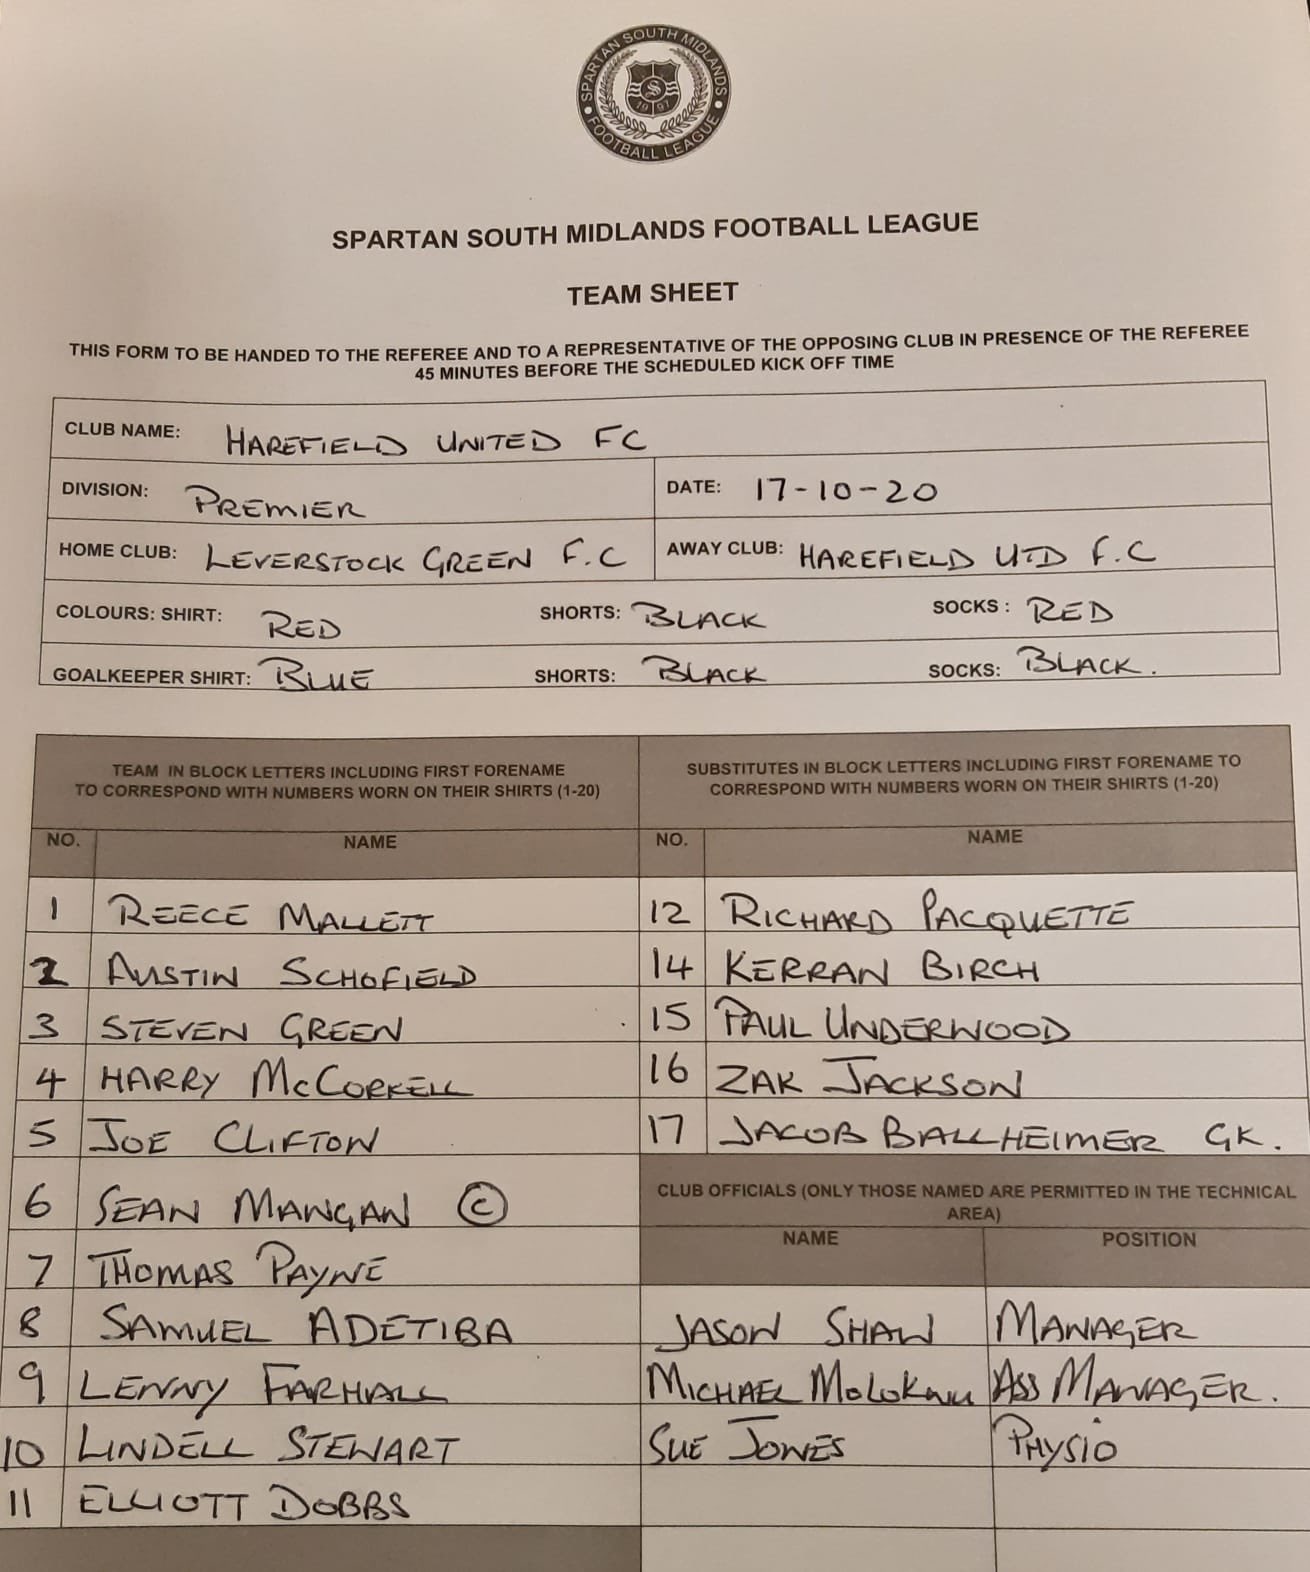 SPARTAN SOUTH MIDLANDS
FOOTBALL LEAGUE
S
1997
SPARTAN SOUTH MIDLANDS FOOTBALL LEAGUE
TEAM SHEET
THIS FORM TO BE HANDED TO THE REFEREE AND TO A REPRESENTATIVE OF THE OPPOSING CLUB IN PRESENCE OF THE REFEREE
45 MINUTES BEFORE THE SCHEDULED KICK OFF TIME
CLUB NAME: HAREFIELD UNITED FC
DIVISION: PREMIER DATE: 17-10-20
HOME CLUB: LEVERSTOCK GREEN F.C AWAY CLUB: HAREFIELD UTD F.C
COLOURS: SHIRT: RED SHORTS: BLACK SOCKS: RED
GOALKEEPER SHIRT: BLUE SHORTS: BLACK SOCKS: BLACK.
TEAM IN BLOCK LETTERS INCLUDING FIRST FORENAME
TO CORRESPOND WITH NUMBERS WORN ON THEIR SHIRTS (1-20)
NO. NAME
1 REECE MALLETT
2 AUSTIN SCHOFIELD
3 STEVEN GREEN
4 HARRY McCORKELL
5 JOE CLIFTON
6 SEAN MANGAN ©
7 THOMAS PAYNE
8 SAMUEL ADETIBA
9 LENNY FARHALL
10 LINDELL STEWART
11 ELLIOTT DOBBS
SUBSTITUTES IN BLOCK LETTERS INCLUDING FIRST FORENAME TO
CORRESPOND WITH NUMBERS WORN ON THEIR SHIRTS (1-20)
NO. NAME
12 RICHARD PACQUETTE
14 KERRAN BIRCH
15 PAUL UNDERWOOD
16 ZAK JACKSON
17 JACOB BALLHEIMER GK.
CLUB OFFICIALS (ONLY THOSE NAMED ARE PERMITTED IN THE TECHNICAL
AREA)
NAME POSITION
JASON SHAW MANAGER
MICHAEL ASS MANAGER.
SUE JONES PHYSIO